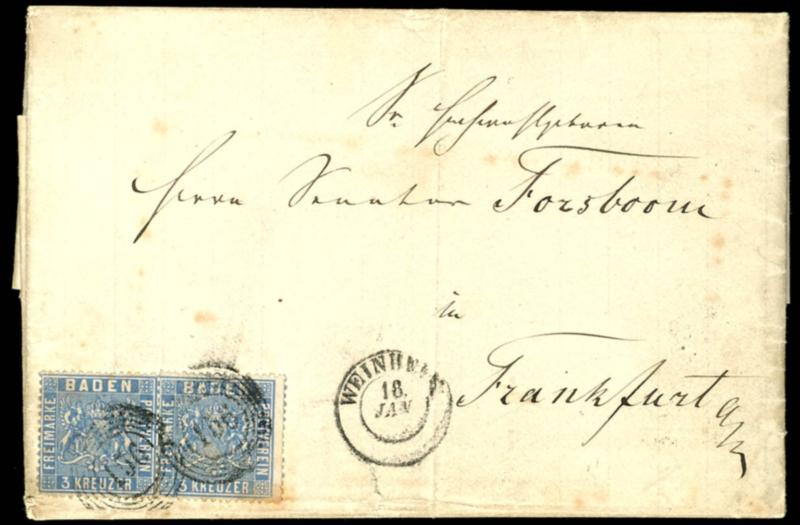 Sr. Hochwohlgeboren
Herrn Senator Forsboom
in
Frankfurt a/M
WEINHEIM
18.
JAN
BADEN
FREIMARKE
POSTVEREIN
3 KREUZER
BADEN
FREIMARKE
POSTVEREIN
3 KREUZER